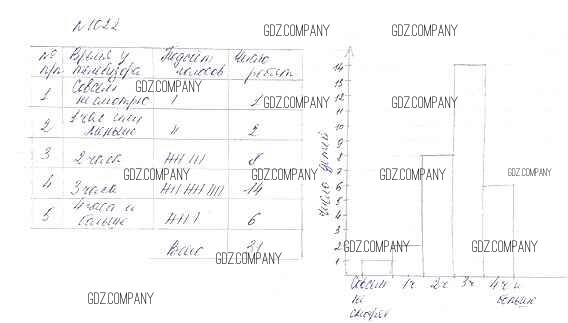 N1022
GDZ.COMPANY GDZ.COMPANY
№ п/п Время у телевизора Подсчёт голосов Число ребят
GDZ.COMPANY GDZ.COMPANY GDZ.COMPANY
1 Совсем не смотрю I 1
GDZ.COMPANY GDZ.COMPANY
2 1 час или меньше II 2
3 2 часа 8
GDZ.COMPANY GDZ.COMPANY GDZ.COMPANY GDZ.COMPANY
4 3 часа 14
5 4 часа и больше 6
Всего 31
GDZ.COMPANY GDZ.COMPANY GDZ.COMPANY
GDZ.COMPANY
число детей
14
13
12
11
10
9
8
7
6
5
4
3
2
1
Совсем не смотрел 1ч 2ч 3ч 4ч и больше